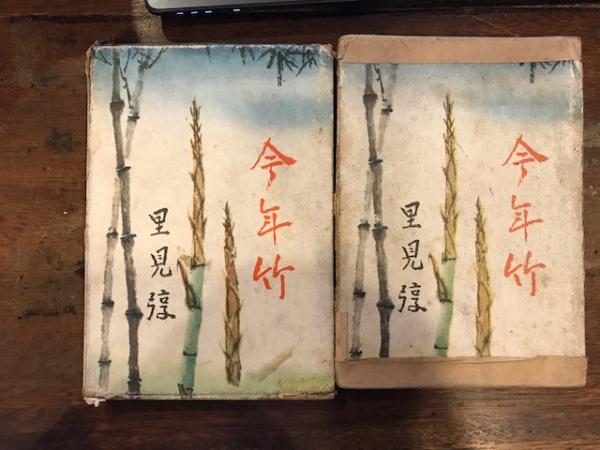 今年竹
里見弴
今年竹
里見弴